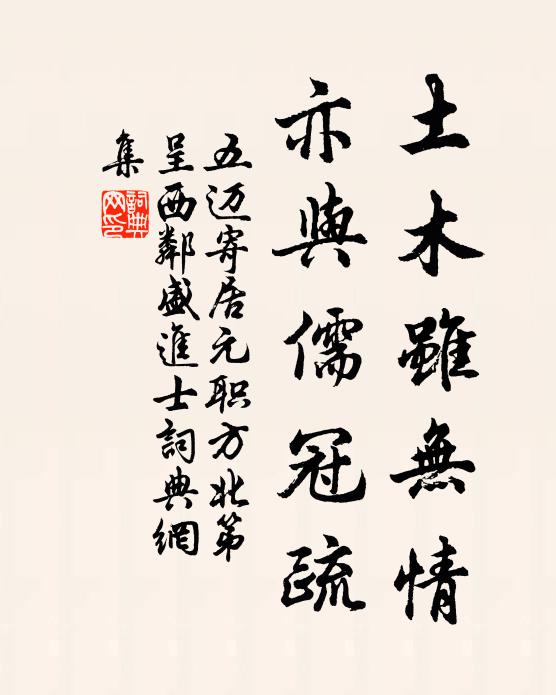 土木雖無情
亦與儒冠疏
五迈寄居元职方北第
呈西鄰盛進士詞典網
集
詞典
网印